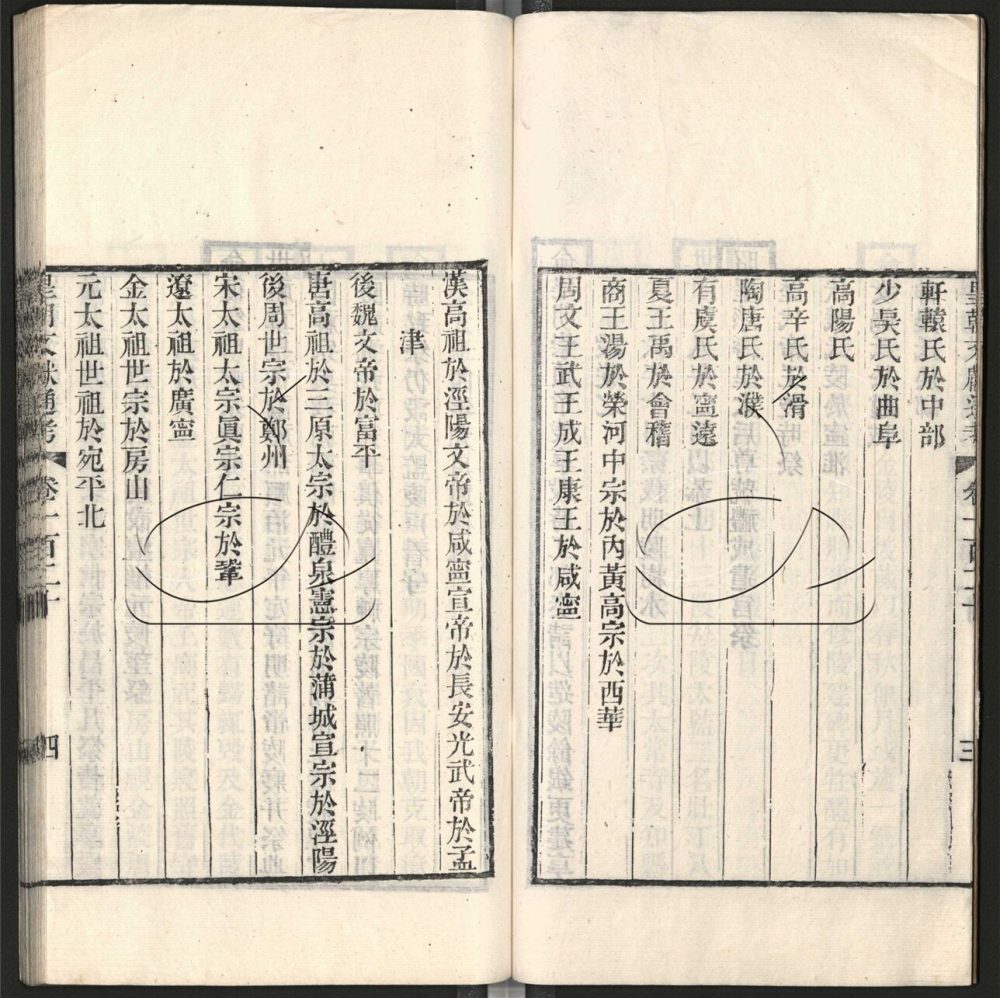 皇朝文獻通考 卷一百二十 三
軒轅氏於中部
少昊氏於曲阜
高陽氏
高辛氏於滑
陶唐氏於濮
有虞氏於寧遠
夏王禹於會稽
商王湯於榮河中宗於內黃高宗於西華
周文王武王成王康王於咸寧
漢高祖於涇陽文帝於咸寧宣帝於長安光武帝於孟
津
後魏文帝於富平
唐高祖於三原太宗於醴泉憲宗於蒲城宣宗於涇陽
後周世宗於鄭州
宋太祖太宗眞宗仁宗於鞏
遼太祖於廣寧
金太祖世宗於房山
元太祖世祖於宛平北
皇朝文獻通考 卷一百二十 四